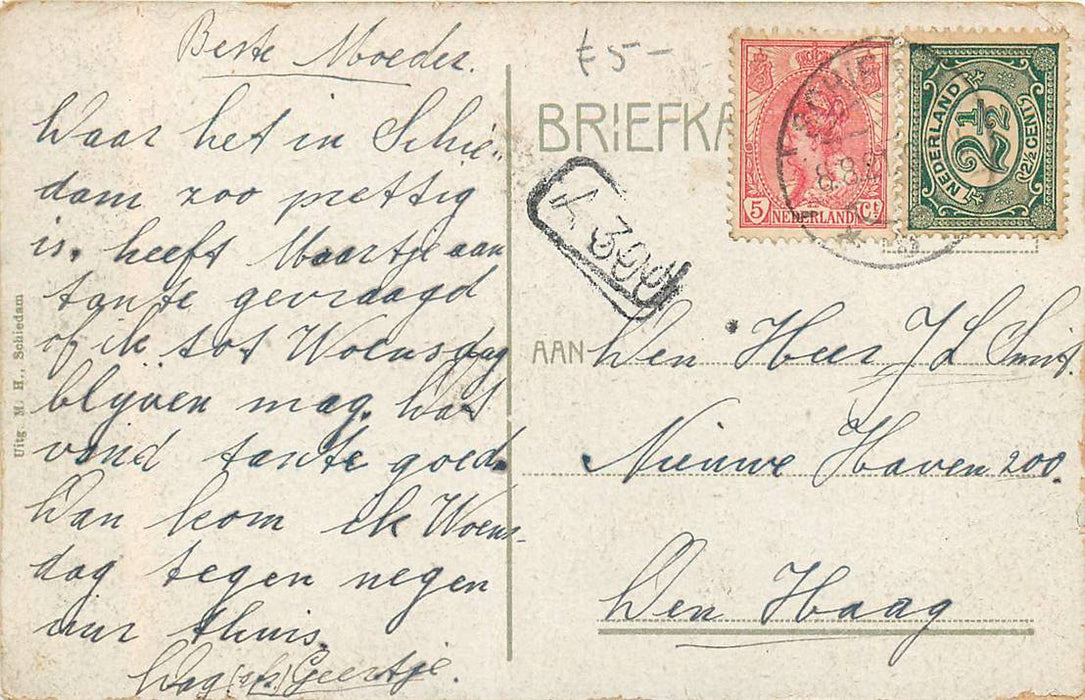 Beste Moeder.
Daar het in Schie-
dam zoo prettig
is. heeft Maartje aan
tante gevraagd
of ik tot Woensdag
blijven mag. Dat
vind tante goed.
Dan kom ik Woens-
dag tegen negen
uur thuis.
Dag Geertje.
Uitg. M. H., Schiedam
£5-
BRIEFKA
A 300
5 NEDERLAND Ct
NEDERLAND
2 1/2
2½ CENT
8.8.21
AAN Den Heer J L Smit.
Nieuwe Haven 200.
Den Haag